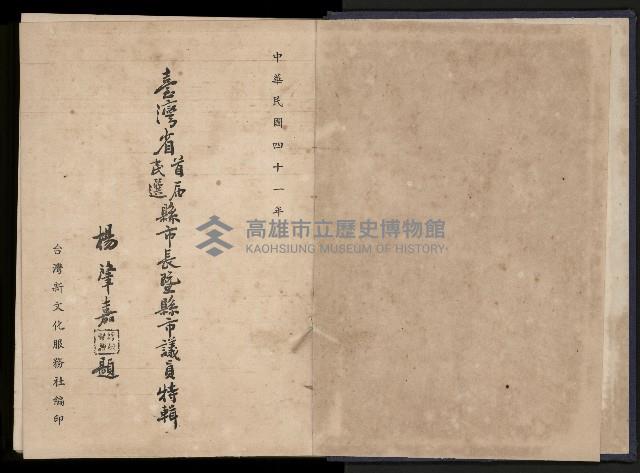 中華民國四十一年
臺灣省首届民選縣市長暨縣市議員特輯
楊肇嘉題
台灣新文化服務社編印
高雄市立歷史博物館
KAOHSIUNG MUSEUM OF HISTORY